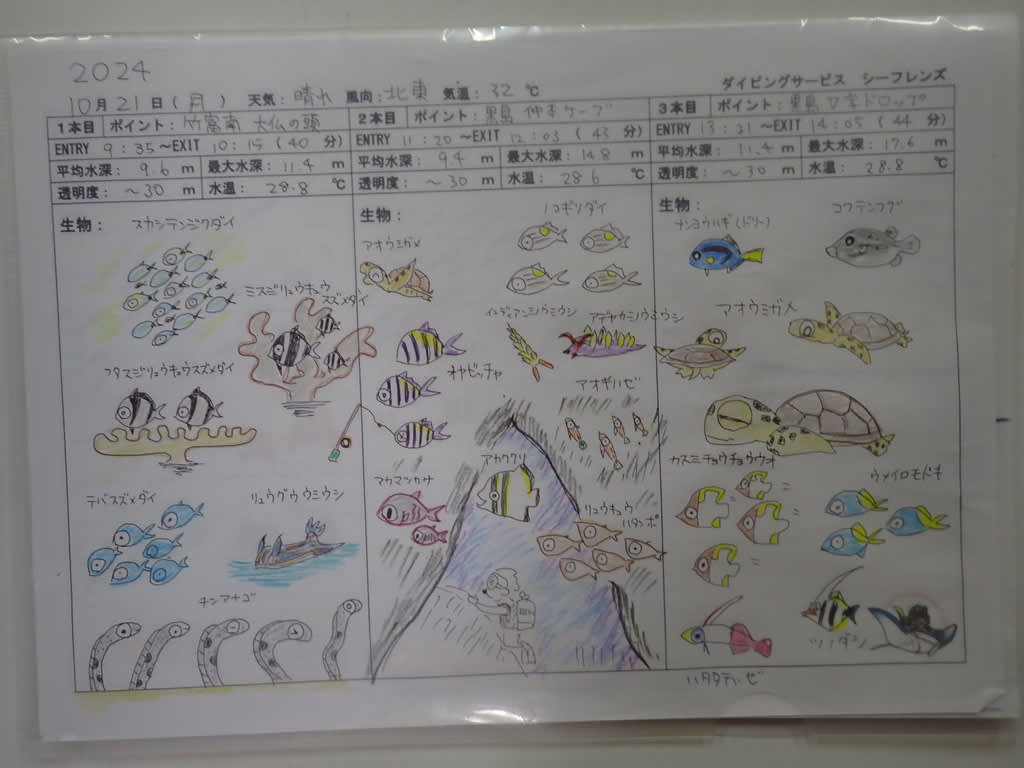 2024
10月21日(月) 天気:晴れ 風向:北東 気温:32℃
ダイビングサービス シーフレンズ
1本目 ポイント:竹富南 大仏の頭
ENTRY 9:35~EXIT 10:15(40 分)
平均水深: 9.6 m 最大水深: 11.4 m
透明度: ~30 m 水温: 28.8 ℃
生物:
スカシテンジクダイ
ミスジリュウキュウ
スズメダイ
フタスジリュウキュウスズメダイ
デバスズメダイ
リュウグウウミウシ
チンアナゴ
2本目 ポイント:黒島 仲本ケーブ
ENTRY 11:20~EXIT 12:03(43 分)
平均水深: 9.4 m 最大水深: 14.8 m
透明度: ~30 m 水温: 28.6 ℃
生物:
ノコギリダイ
アオウミガメ
インディアンミノウミウシ
アデヤカミノウミウシ
オヤビッチャ
アオギハゼ
アカククリ
アカマツカサ
リュウキュウ
ハタンポ
3本目 ポイント:黒島 ドロップ
ENTRY 13:21~EXIT 14:05(44 分)
平均水深: 11.4 m 最大水深: 17.6 m
透明度: ~30 m 水温: 28.8 ℃
生物:
ナンヨウハギ(ドリー)
コクテンフグ
アオウミガメ
カスミチョウチョウウオ
ウメイロモドキ
ツノダシ
ハタタテハゼ